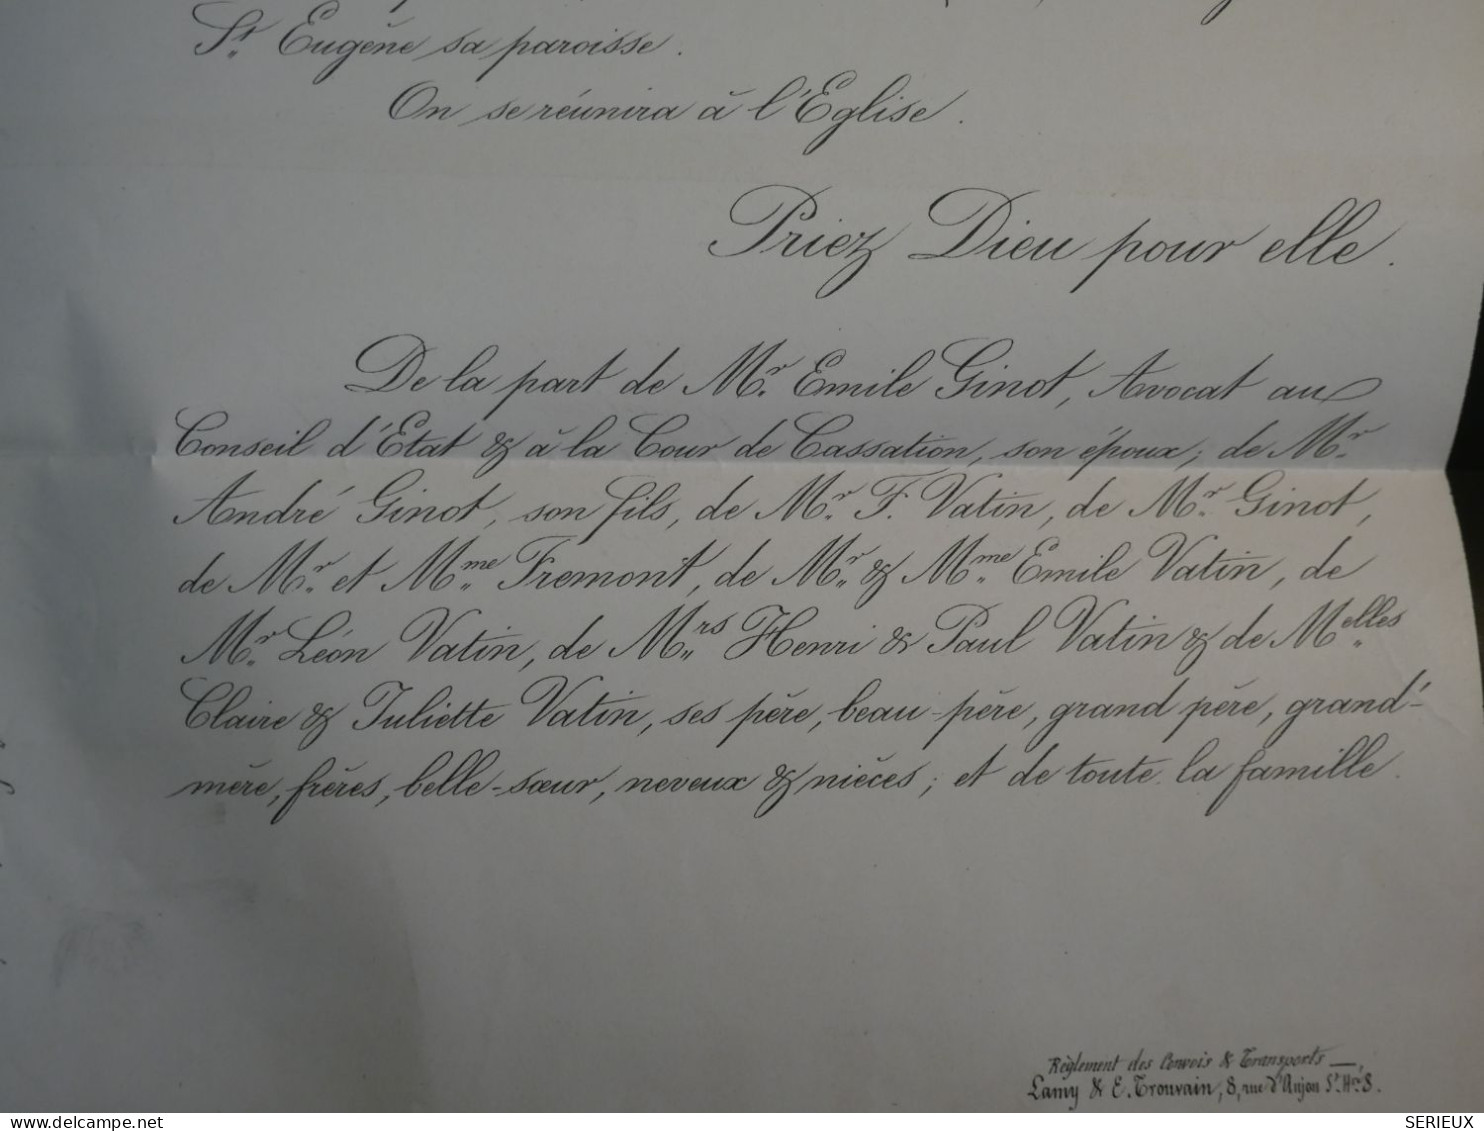 St Eugène sa paroisse.
On se réunira à l'Eglise.
Priez Dieu pour elle.
De la part de Mr. Emile Ginot, Avocat au
Conseil d'Etat & à la Cour de Cassation, son époux; de Mr
André Ginot, son fils, de Mr. F. Vatin, de Mr. Ginot,
de Mr. et Mme Fremont, de Mr. & Mme Emile Vatin, de
Mr. Léon Vatin, de Mrs Henri & Paul Vatin & de Melles
Claire & Juliette Vatin, ses père, beau-père, grand père, grand'-
mère, frères, belle-sœur, neveux & nièces; et de toute la famille.
Règlement des Convois & Transports —,
Lamy & E. Trouvain, 8, rue d'Anjou St. Hré 8.
SERIEUX